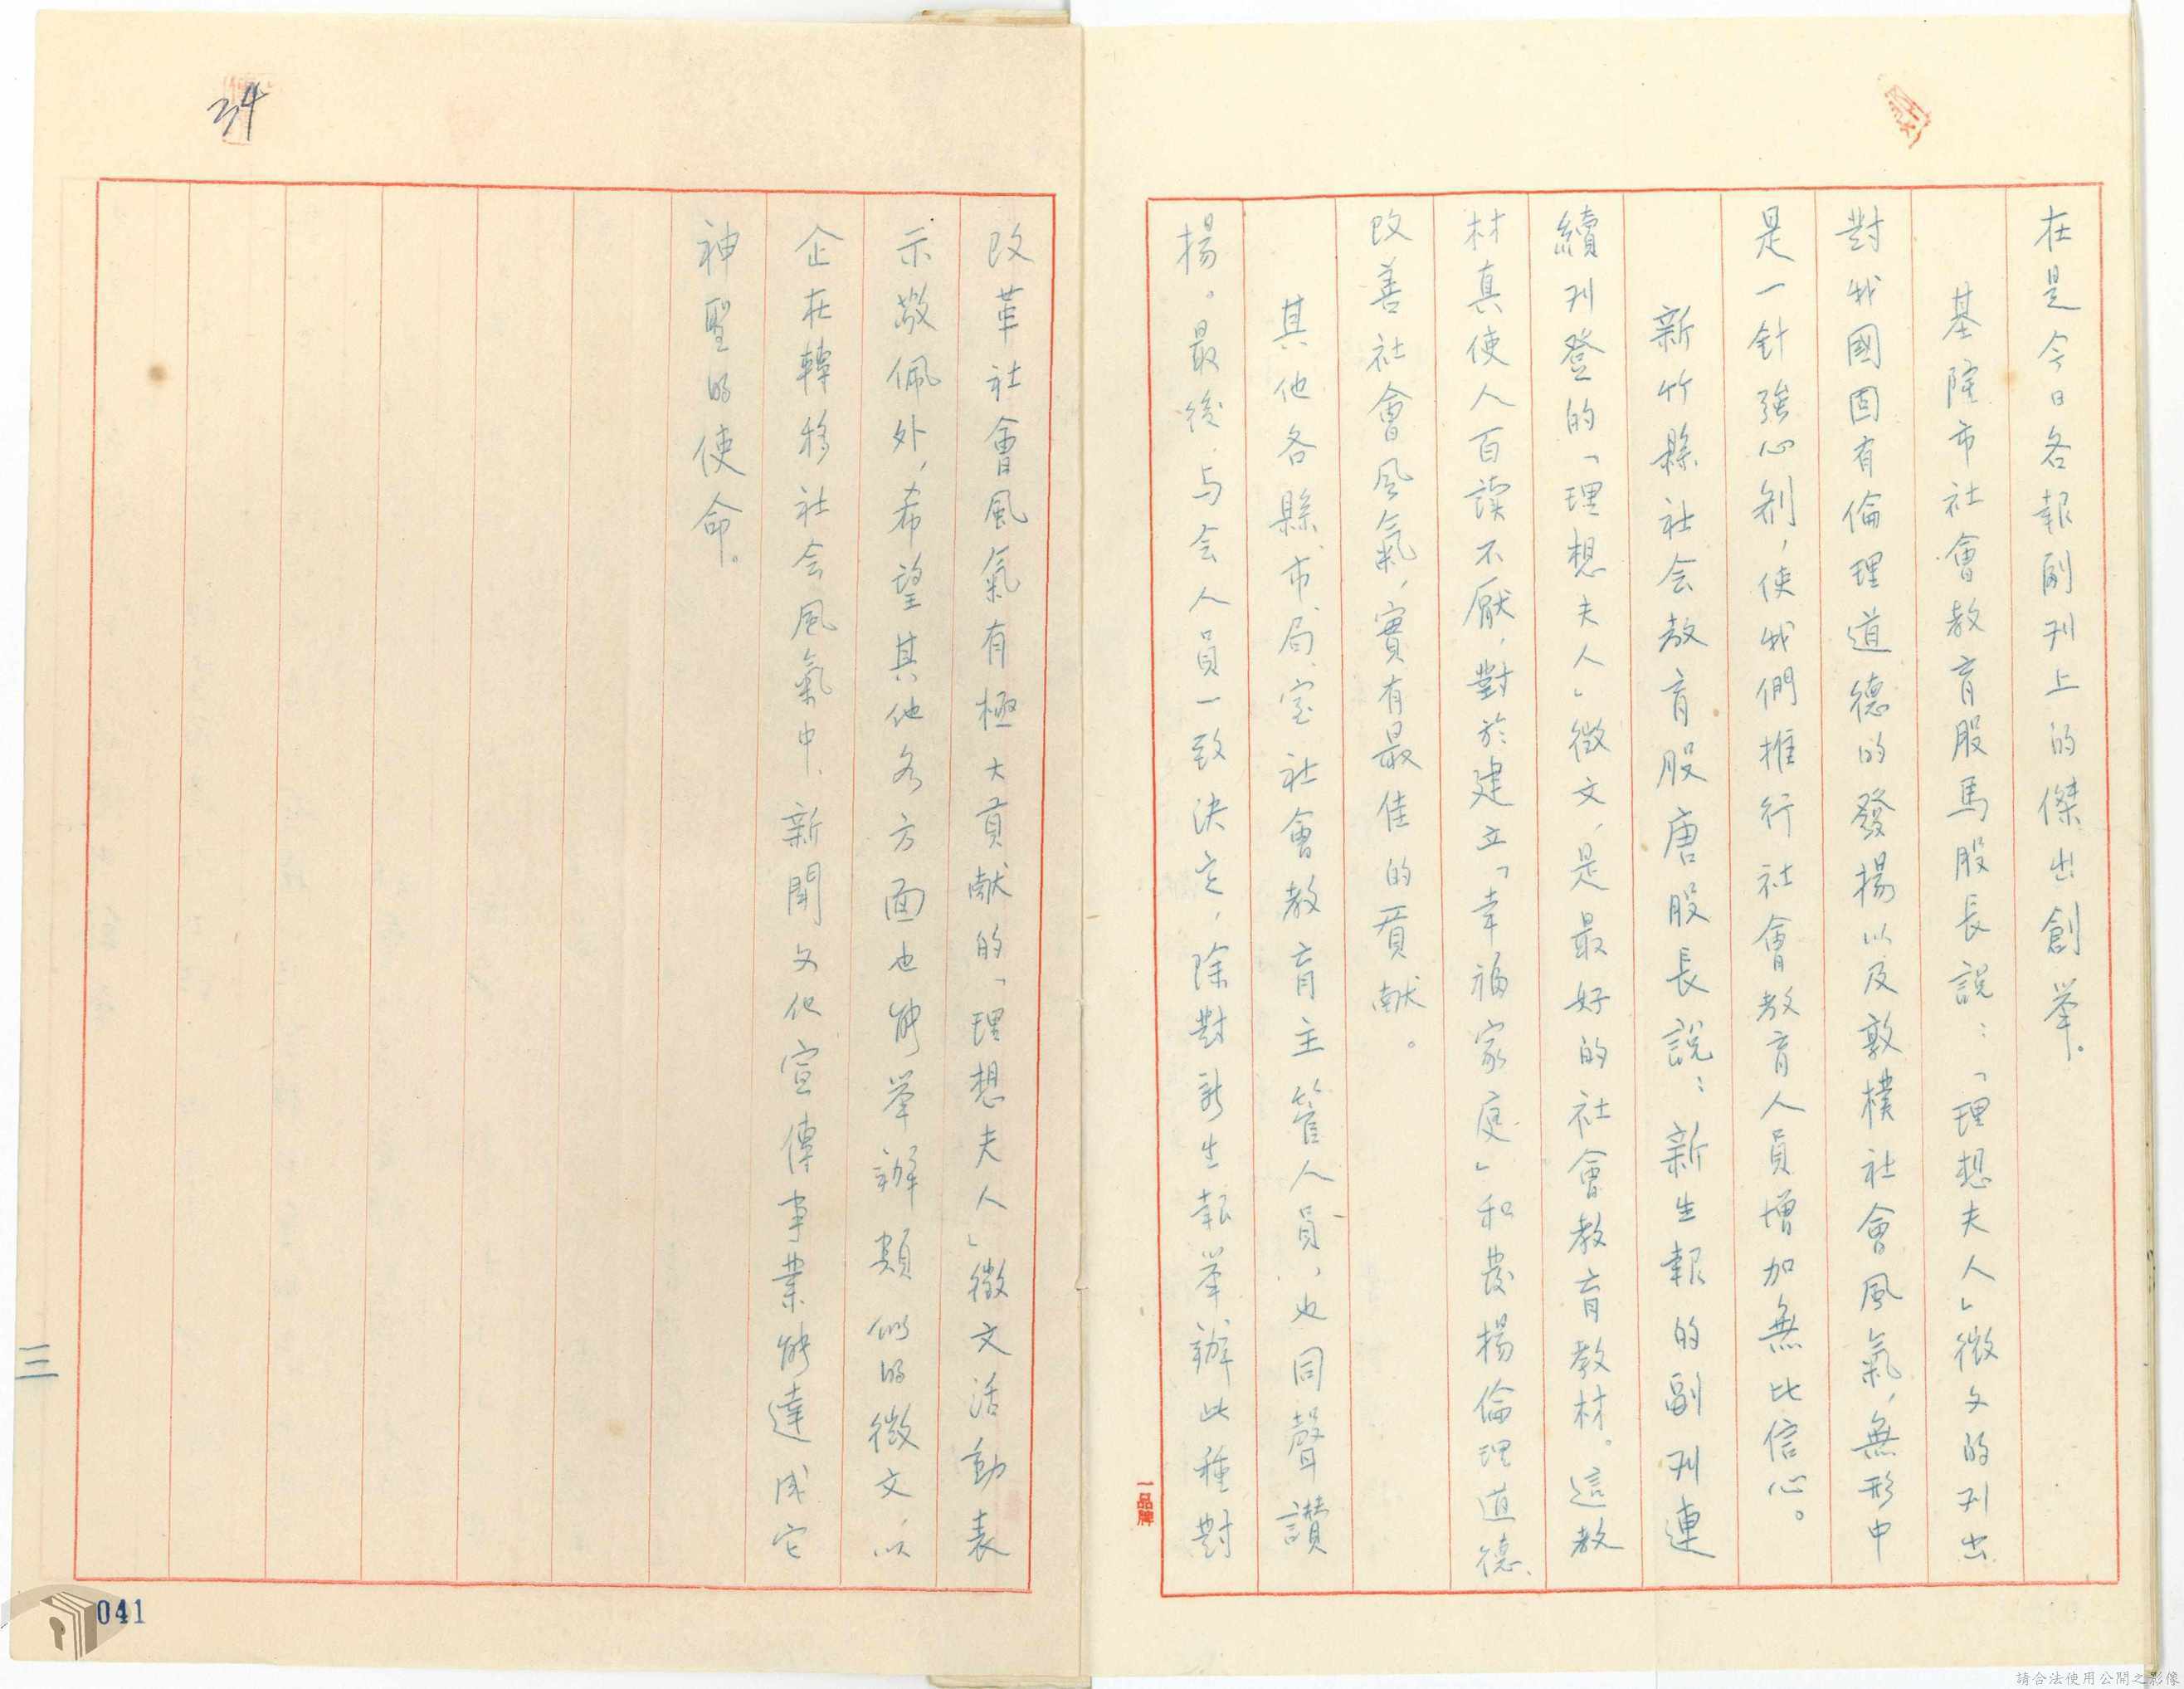 在是今日各報副刊上的傑出創举。
基隆市社會教育股馬股長説：「理想夫人」徵文的刋出
對我國固有倫理道德的發揚以及敦樸社會風氣，無形中
是一針強心剂，使我們推行社會教育人員增加無比信心。
新竹縣社会教育股唐股長説：新生報的副刋連
續刋登的「理想夫人」徵文，是最好的社會教育教材。這教
材真使人百讀不厭，對於建立「幸福家庭」和發揚倫理道德、
改善社會風氣，實有最佳的貢献。
其他各縣、市、局、室社會教育主管人員，也同聲讃
揚。最後，与会人員一致決定，除對新生報举辦此種對
改革社會風氣有極大貢献的「理想夫人」徵文活動表
示敬佩外，希望其他各方面也能举辦類似的徵文，以
企在轉移社会風氣中，新聞文化宣傳事業能達成它
神聖的使命。
34
三
041
一品牌
請合法使用公開之影像